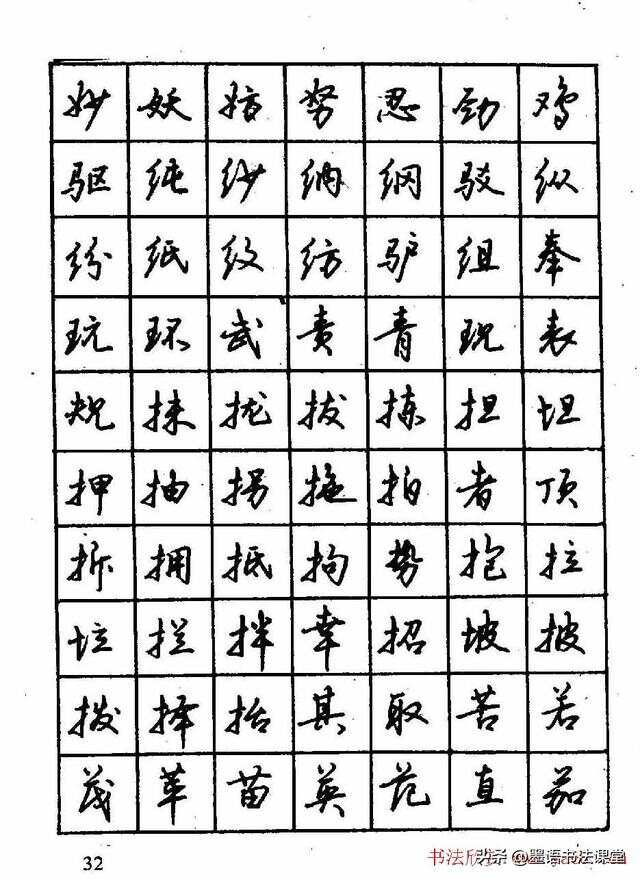 妙 妖 妨 努 忍 劲 鸡
驱 纯 纱 纳 纲 驳 纵
纷 纸 纹 纺 驴 纽 奉
玩 环 武 责 青 现 表
规 抹 拢 拔 拣 担 坦
押 抽 拐 拖 拍 者 顶
拆 拥 抵 拘 势 抱 拉
垃 拦 拌 幸 招 坡 披
拨 择 抬 其 取 苦 若
茂 苹 苗 英 范 直 茄
32 书法欣 头条 @墨语书法课堂